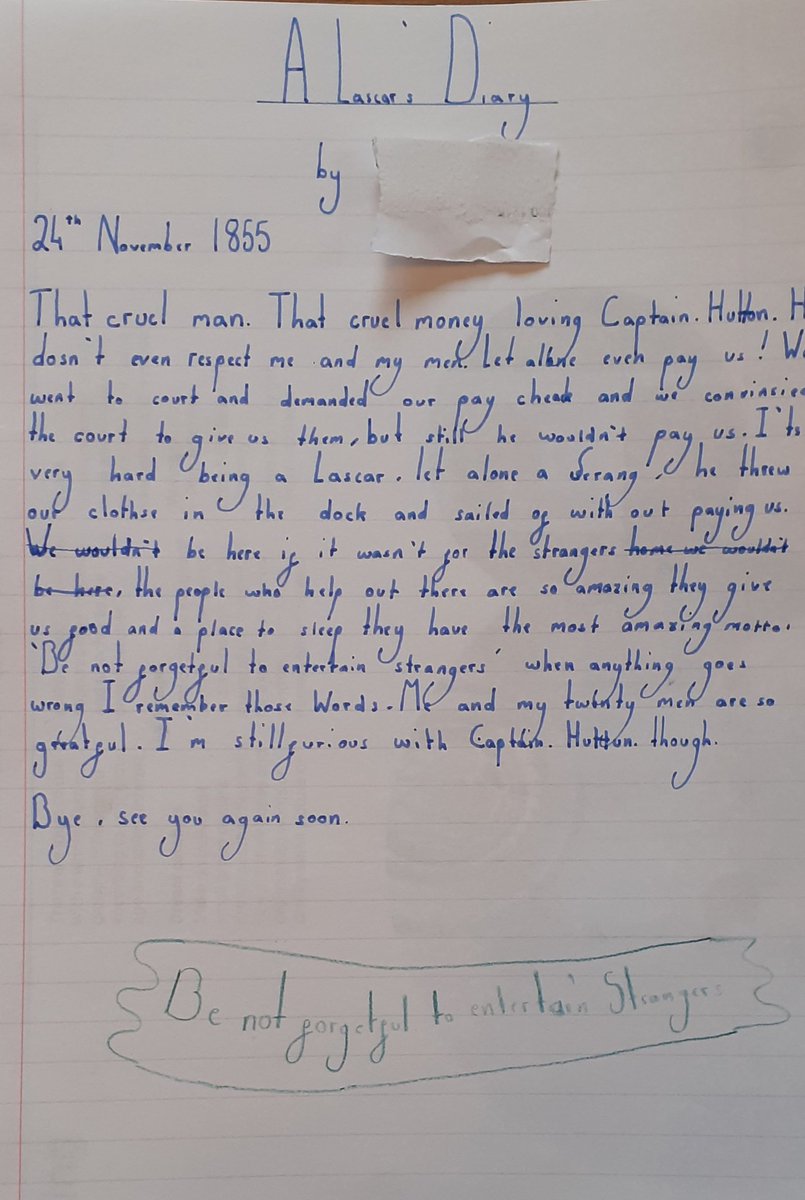 A Lascar's Diary
by
24th November 1855
That cruel man. That cruel money loving Captain. Hutton. H
dosn't even respect me and my men. Let allone even pay us! W
went to court and demanded our pay cheak and we convinsied
the court to give us them, but still he wouldn't pay us. I'ts
very hard being a Lascar. let alone a Serang, he threw
our clothse in the dock and sailed of with out paying us.
We wouldn't be here if it wasn't for the strangers home we wouldn't
be here. the people who help out there are so amazing they give
us food and a place to sleep they have the most amazing motto.
'Be not forgetful to entertain strangers' when anything goes
wrong I remember those Words. Me and my twenty men are so
greatful. I'm still furious with Captain. Hutton. though.
Bye. see you again soon.
Be not forgetful to entertain Strangers